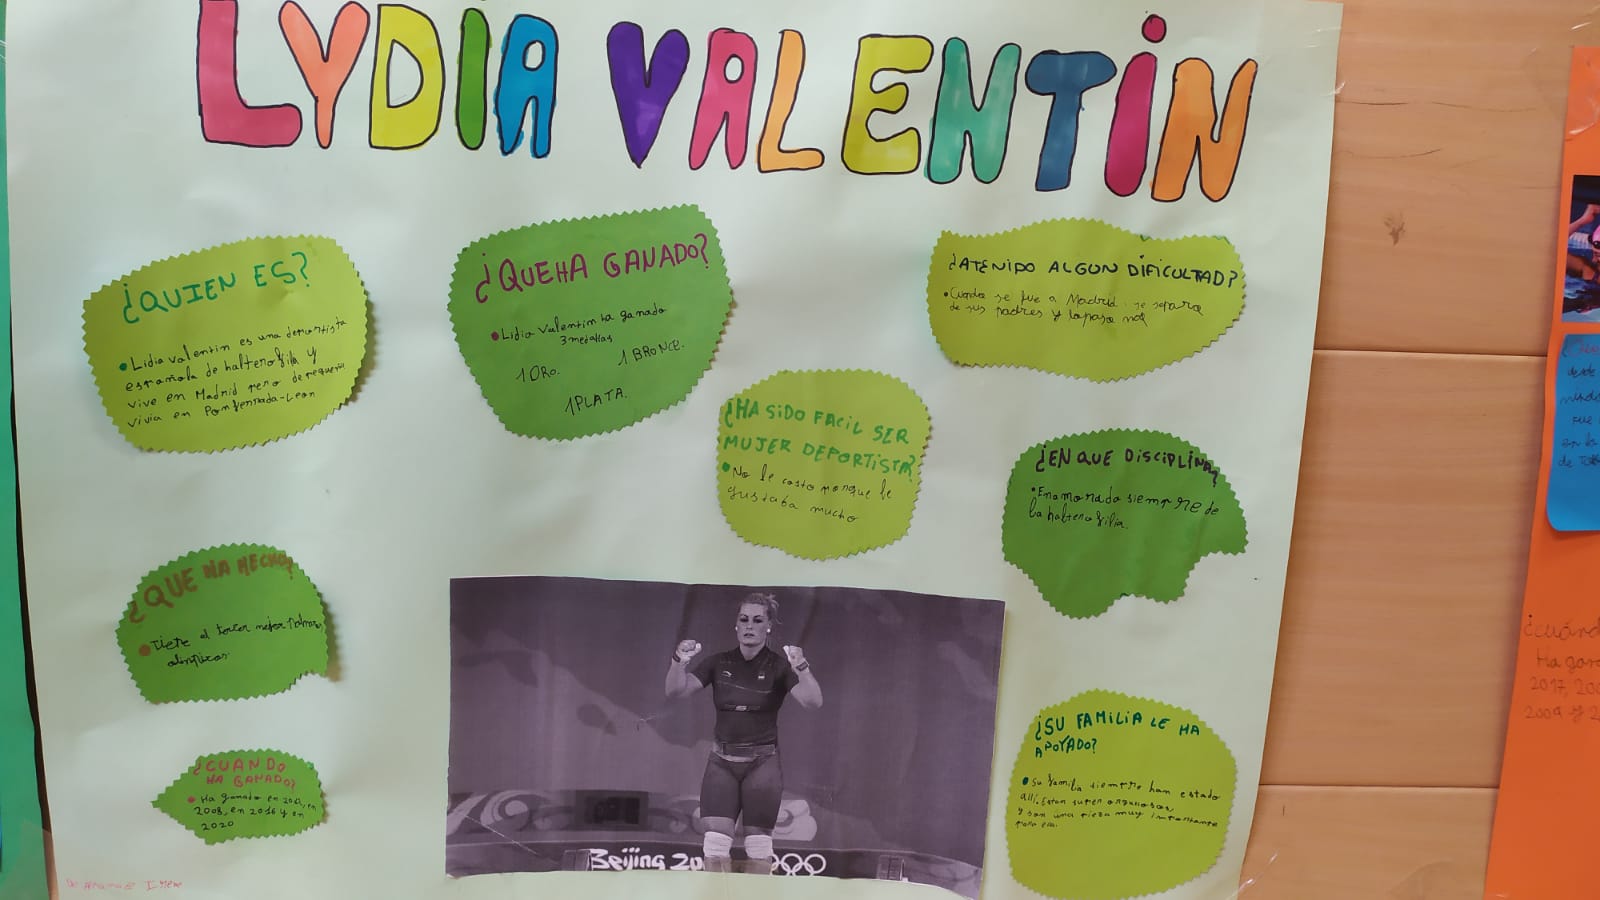 LYDIA VALENTIN
¿QUIEN ES?
• Lidia Valentin es una deportista
española de halterofila y
vive en Madrid pero de pequeña
vivia en Ponferrada-Leon
¿QUE HA GANADO?
• Lidia Valentin ha ganado
3 medallas
1 ORO.
1 BRONCE.
1 PLATA.
¿A TENIDO ALGUN DIFICULTAD?
• Cuando se fue a Madrid se separa
de sus padres y lo paso mal
¿HA SIDO FACIL SER
MUJER DEPORTISTA?
• No le costo porque le
gustaba mucho
¿EN QUE DISCIPLINA?
• Enamorada siempre de
la halterofilia.
¿QUE HA HECHO?
• Tiene el tercer mejor
olimpicos.
¿CUANDO
HA GANADO?
• Ha ganado en 2012, en
2008, en 2016 y en
2020
¿SU FAMILIA LE HA
APOYADO?
• Su familia siempre han estado
allí. Estan super orgullosos
y son una pieza muy importante
para ella.
Beijing 20
De: Ainara e Irene
desde
fue
en la
de
¿cuánd
Ha gan
2017, 200
2009 y 2